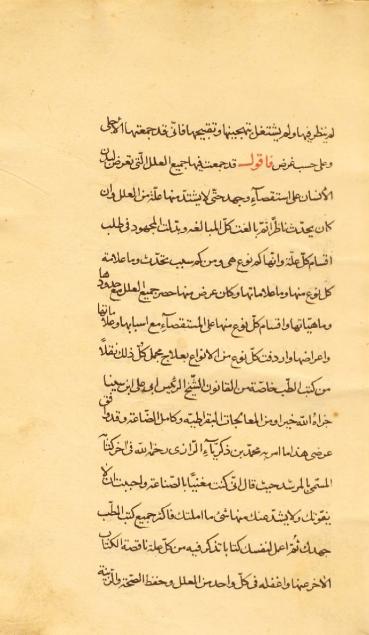 لم ينظر فيها ولم يشتغل بتهجينها وتقبيحها فانى قد جمعتها الاجلى
وعلى حسب غرضى فاقول قد جمعت فيها جميع العلل التى تعرض لبدن
الانسان على استقصآء وجهد حتى لا يشذ منها علة من العلل وان
كان يحدث نادرا ثم بالغت كل المبالغه وبذلت المجهود فى طلب
اقسام كل علة وانها كم نوع هى ومن كم سبب تحدث وما علامة
كل نوع منها وما علاماتها وكان غرضى منها حصر جميع العلل مع حدودها
وماهياتها واقسام كل نوع منها على المستقصآء مع اسبابها وعلاماتها
واعراضها واردفت كل نوع من الانواع بعلاج مجمل كل ذلك نقلا
من كتب الطب خاصة من القانون الشيخ الرئيس ابو على ابن سينا
جزاه الله خيرا ومن المعالجات البقراطيه وكامل الصناعة وقد
عوضى هذا ما امر به محمد بن ذكريآء الرازى رحمه الله فى اخر كتابه
المسمى بالمرشد حيث قال ان كنت معنيا بالصناعة واحببت ان لا
يفوتك ولا يشذ عنك منها شئ ما امكنك فاكثر جميع كتب الطب
جهدك ثم اعمل لنفسك كتابا تذكر فيه من كل علة ناقصة الكتاب
الاخر عنها واغفله فى كل واحد من العلل وحفظ الصحة